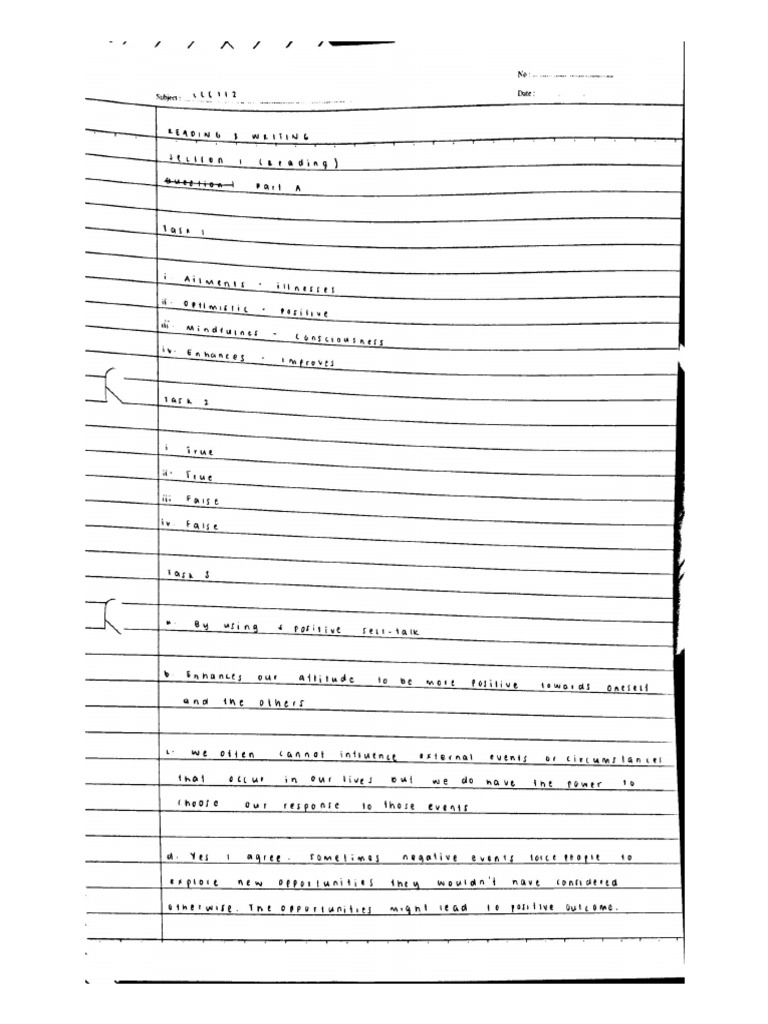 No :
Subject : LCC112
Date :
READING & WRITING
Section 1 (Reading)
Question 1 Part A
Task 1
i. Ailments - illnesses
ii. Optimistic - positive
iii. Mindfulnes - Consciousness
iv. Enhances - Improves
Task 2
i. True
ii. True
iii. False
iv. False
Task 3
a. By using positive self-talk
b. Enhances our attitude to be more positive towards oneself
and the others
c. We often cannot influence external events or circumstances
that occur in our lives but we do have the power to
choose our response to those events
d. Yes I agree. Sometimes negative events force people to
explore new opportunities they wouldn't have considered
otherwise. The opportunities might lead to positive outcome.